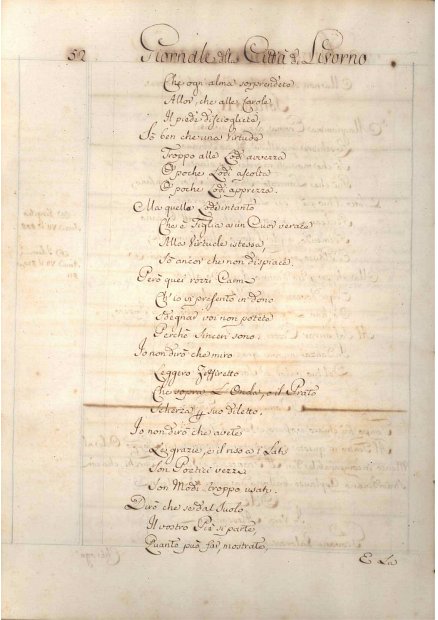 52 Giornale della Città di Livorno
Che ogni alma sorprendete
Allor, che alle Carole
Il piede discioglete,
Sò ben che una Virtude
Troppo alle Lodi avvezza
O poche Lodi ascolta
O poche Lodi apprezza.
Ma quella Lode intanto
Che è Figlia a un Cuor verace
Alla Virtude istessa,
Sò ancor che non dispiace.
Però quei rozzi Carmi
Ch'io vi presento in dono
Sdegnar voi non potete
Perchè Sinceri sono.
Io non dirò che miro
Leggero Zeffiretto
Che sopra L'Onda, o il Prato
Scherza p suo diletto.
Io non dirò che avete
Le grazie, e il riso a i Lati
Son Poetici vezzi
Son Modi troppo usati.
Dirò che se dal Suolo
Il vostro Piè si parte,
Quanto può far mostrate,
E La